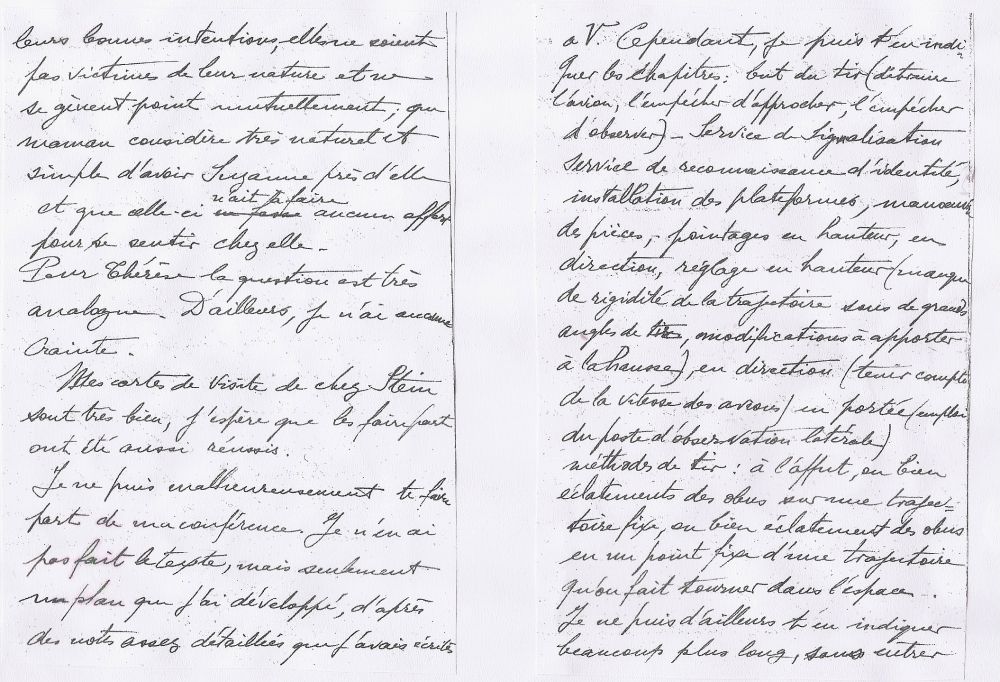 leurs bonnes intentions, elles ne soient
pas victimes de leur nature et ne
se gênent point mutuellement ; que
maman considère très naturel et
simple d'avoir Suzanne près d'elle
n'ait à faire
et que celle-ci aucun effort
pour se sentir chez elle.
Pour Thérèse la question est très
analogue. D'ailleurs, je n'ai aucune
crainte.
Mes cartes de visite de chez Stein
sont très bien, j'espère que les faire part
ont été aussi réussis.
Je ne puis malheureusement te faire
part de ma conférence. Je n'en ai
pas fait le texte, mais seulement
un plan que j'ai développé, d'après
des notes assez détaillées que j'avais écrites
a V. Cependant, je puis t'en indi-
quer les chapitres : but du tir (détruire
l'avion, l'empêcher d'approcher, l'empêcher
d'observer) - Service de Signalisation
service de reconnaissance d'identité,
installation des plateformes, manoeuvre
des pièces, pointages en hauteur, en
direction, réglage en hauteur (manque
de rigidité de la trajectoire sous de grands
angles de tir, modifications à apporter
à la hausse), en direction (tenir compte
de la vitesse des avions) en portée (emploi
du poste d'observation latérale)
méthodes de tir : à l'affut, ou bien
éclatements des obus sur une trajec=
toire fixe, ou bien éclatement des obus
en un point fixe d'une trajectoire
qu'on fait tourner dans l'espace.
Je ne puis d'ailleurs t'en indiquer
beaucoup plus long, sans entrer